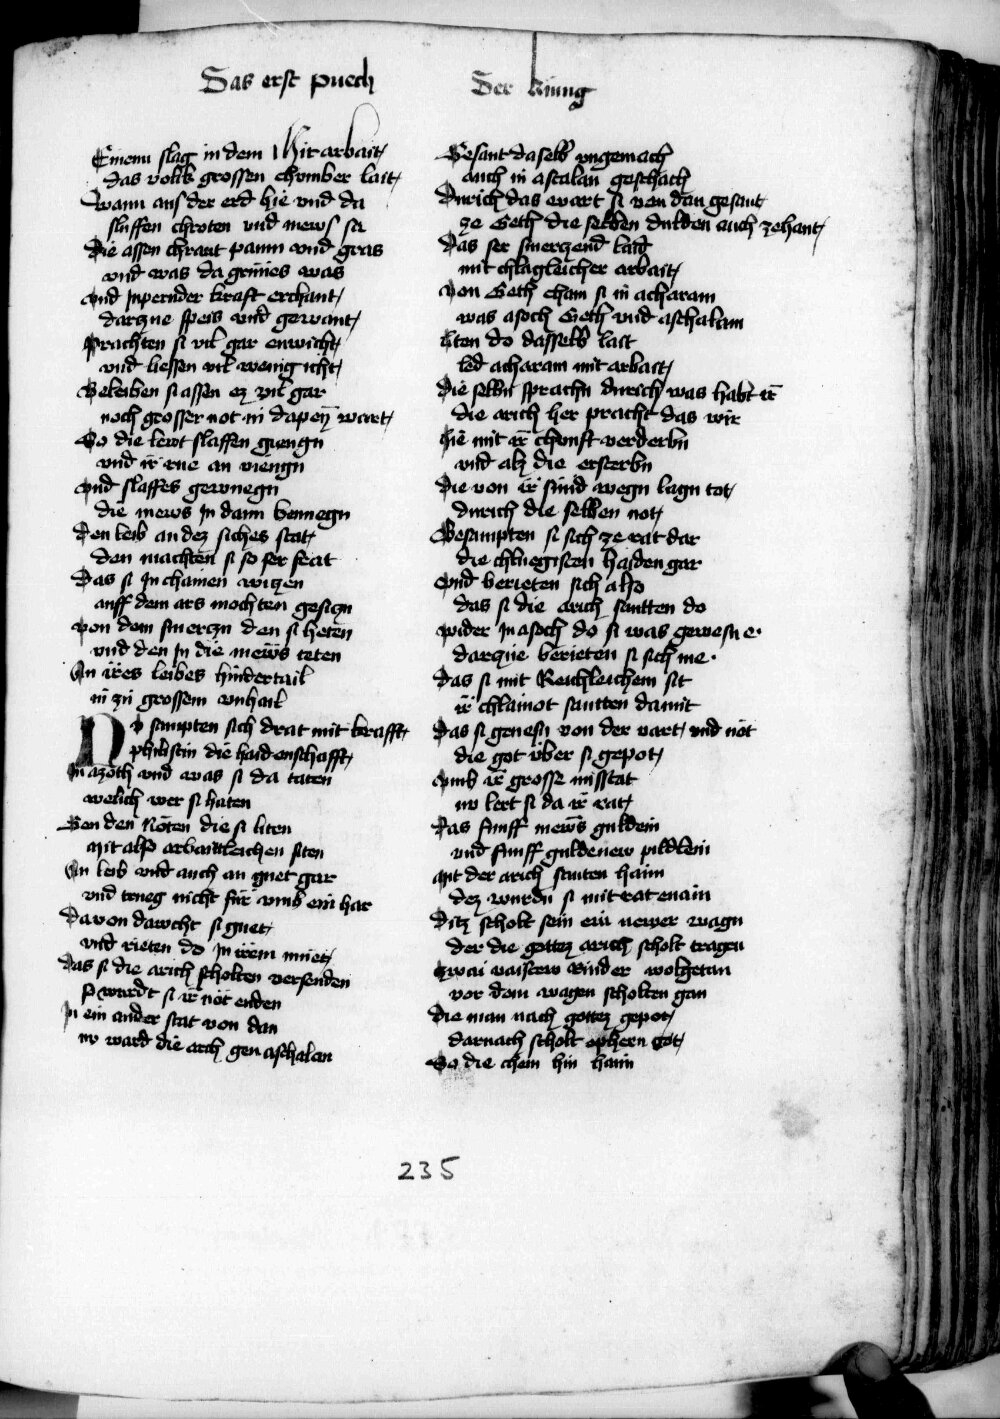 Das erst puech
Der kunig
Einenn slag in dem Mit arbait
das volkk grossen chumber lait
Wann aus der erd hie vnd da
sluffen chroten vnd mews sa
Die assen chraut paum vnd gras
vnd was da grünes was
Vnd Inpernder kraft erchant
darczue speis vnd gewant
Prachten si vil gar enwicht
vnd liessen vil wenig icht
Beleiben si assen ez vil gar
noch grosser not in dapey wart
So die lewt slaffen giengn
vnd ir rue an viengn
Vnd slaffes gewnegn
die mews In dann bennegn
Den leib an dez siches stat
den machten si so ser seat
Das si In chainen witzen
auff dem ars mochten gesiczn
Von dem smerczn den si heten
vnd den In die mews teten
An ires leibes hindertail
in zu grossem vnhail
Do sampten sich drat mit krafft
philistin die haidenschafft
In azoth vnd was si da taten
welich wer si haten
Von den Nöten die si liten
mit also arbaittleichen siten
An leib vnd auch an guet gar
vnd trueg nicht für vmb ein har
Davon dawcht si guet
vnd rieten do In irem muet
Das si die arich scholten versenden
So wurdt si ir not enden
In ein ander stat von dan
nv ward die arch gen aschalan
Gesant daselb vngemach
auch in ascalan geschach
Durich das wart si von dan gesant
ze Geth die selben dulden auch zehant
Das ser smerczend laid
mit chlagleicher arbait
Von Geth cham si in acharam
was asoch Geth vnd aschalam
Liten do dasselb lait
led acharam mit arbait
Die selbn sprachn durich was habt ir
die arich her pracht das wir
Hie mit ir chunft verderbn
vnd als die ersterbn
Die von ir sünd wegn lagn tot
durich die selben not
Besampten si sich ze rat dar
die chluegisten haiden gar
Vnd berieten sich also
das si die arich santten do
Wider In asoch do si was gewesn e
darczue berieten si sich me
Das si mit Reichleichem sit
ir chlainot santten damit
Das si genesn von der vart vnd not
die got über si gepot
Vmb ir grosse misstat
nv lert si da ir rat
Das funff mews guldein
vnd funff guldenew pildlein
Mit der arich santen haim
dez wurdn si mit rat enain
Ditz scholt sein ein newer wagn
der die gottez arich scholt tragen
Zwai vaistew Rinder wolgetan
vor dem wagen scholten gan
Die man nach gottez gepot
darnach scholt ophern got
So die chem hin haim
235